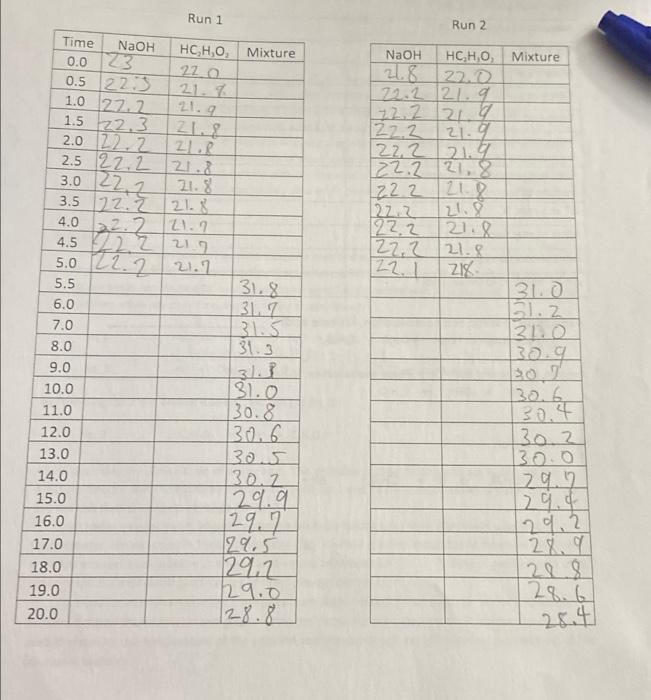 Run 1 Run 2
Time NaOH HC₂H₃O₂ Mixture NaOH HC₂H₃O₂ Mixture
0.0 23 22.0 21.8 22.0
0.5 22.3 21.8 22.2 21.9
1.0 22.2 21.9 22.2 21.9
1.5 22.3 21.8 22.2 21.9
2.0 22.2 21.8 22.2 21.9
2.5 22.2 21.8 22.2 21.8
3.0 22.2 21.8 22.2 21.8
3.5 22.2 21.8 22.2 21.8
4.0 22.2 21.7 22.2 21.8
4.5 22.2 21.7 22.2 21.8
5.0 22.2 21.7 22.1 218.
5.5 31.8 31.0
6.0 31.7 31.2
7.0 31.5 31.0
8.0 31.3 30.9
9.0 30.7
10.0 31.0 30.6
11.0 30.8 30.4
12.0 30.6 30.2
13.0 30.5 30.0
14.0 30.2 29.7
15.0 29.9 29.4
16.0 29.7 29.2
17.0 29.5 28.9
18.0 29.2 28.8
19.0 29.0 28.6
20.0 28.8 28.4